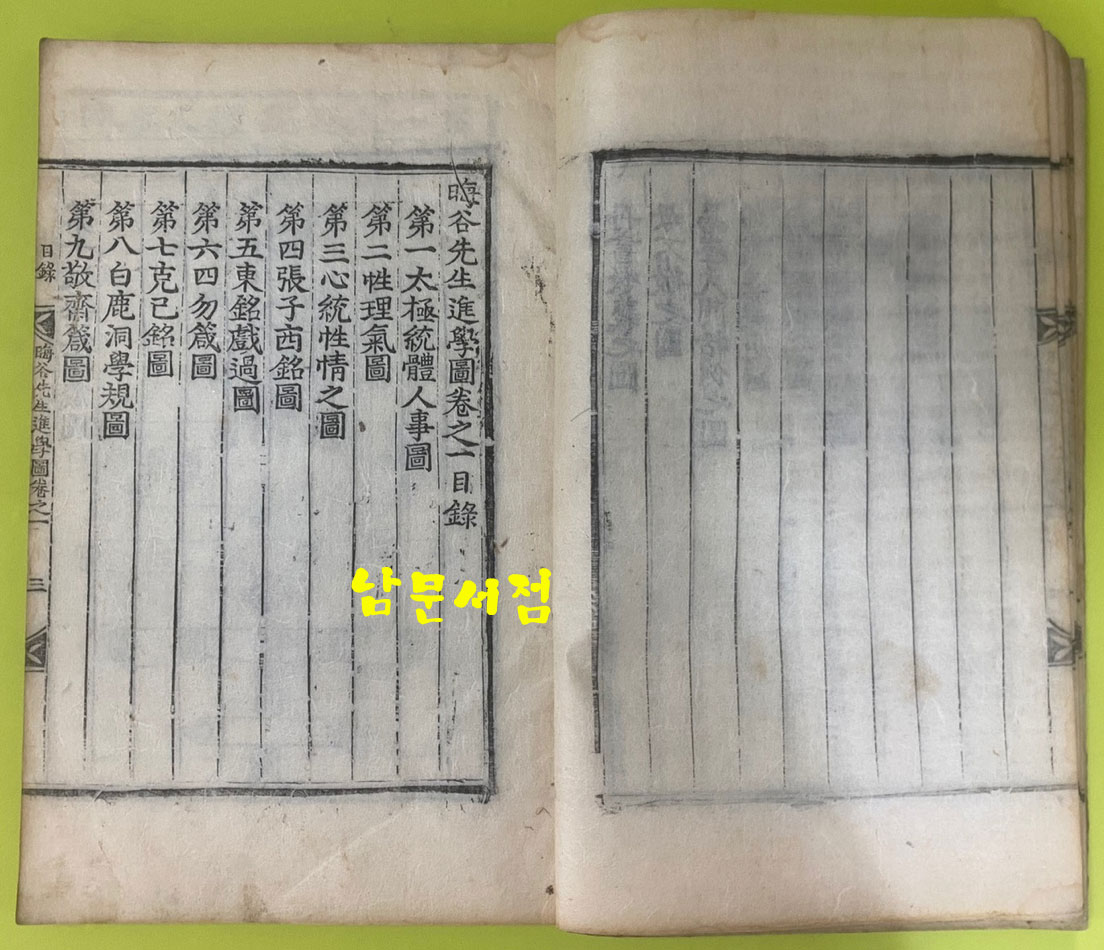 晦谷先生進學圖卷之一目錄
第一太極統體人事圖
第二性理氣圖
第三心統性情之圖
第四張子西銘圖
第五東銘戲過圖
第六四勿箴圖
第七克己銘圖
第八白鹿洞學規圖
第九敬齋箴圖
目錄
晦谷先生進學圖卷之一
三
남문서점